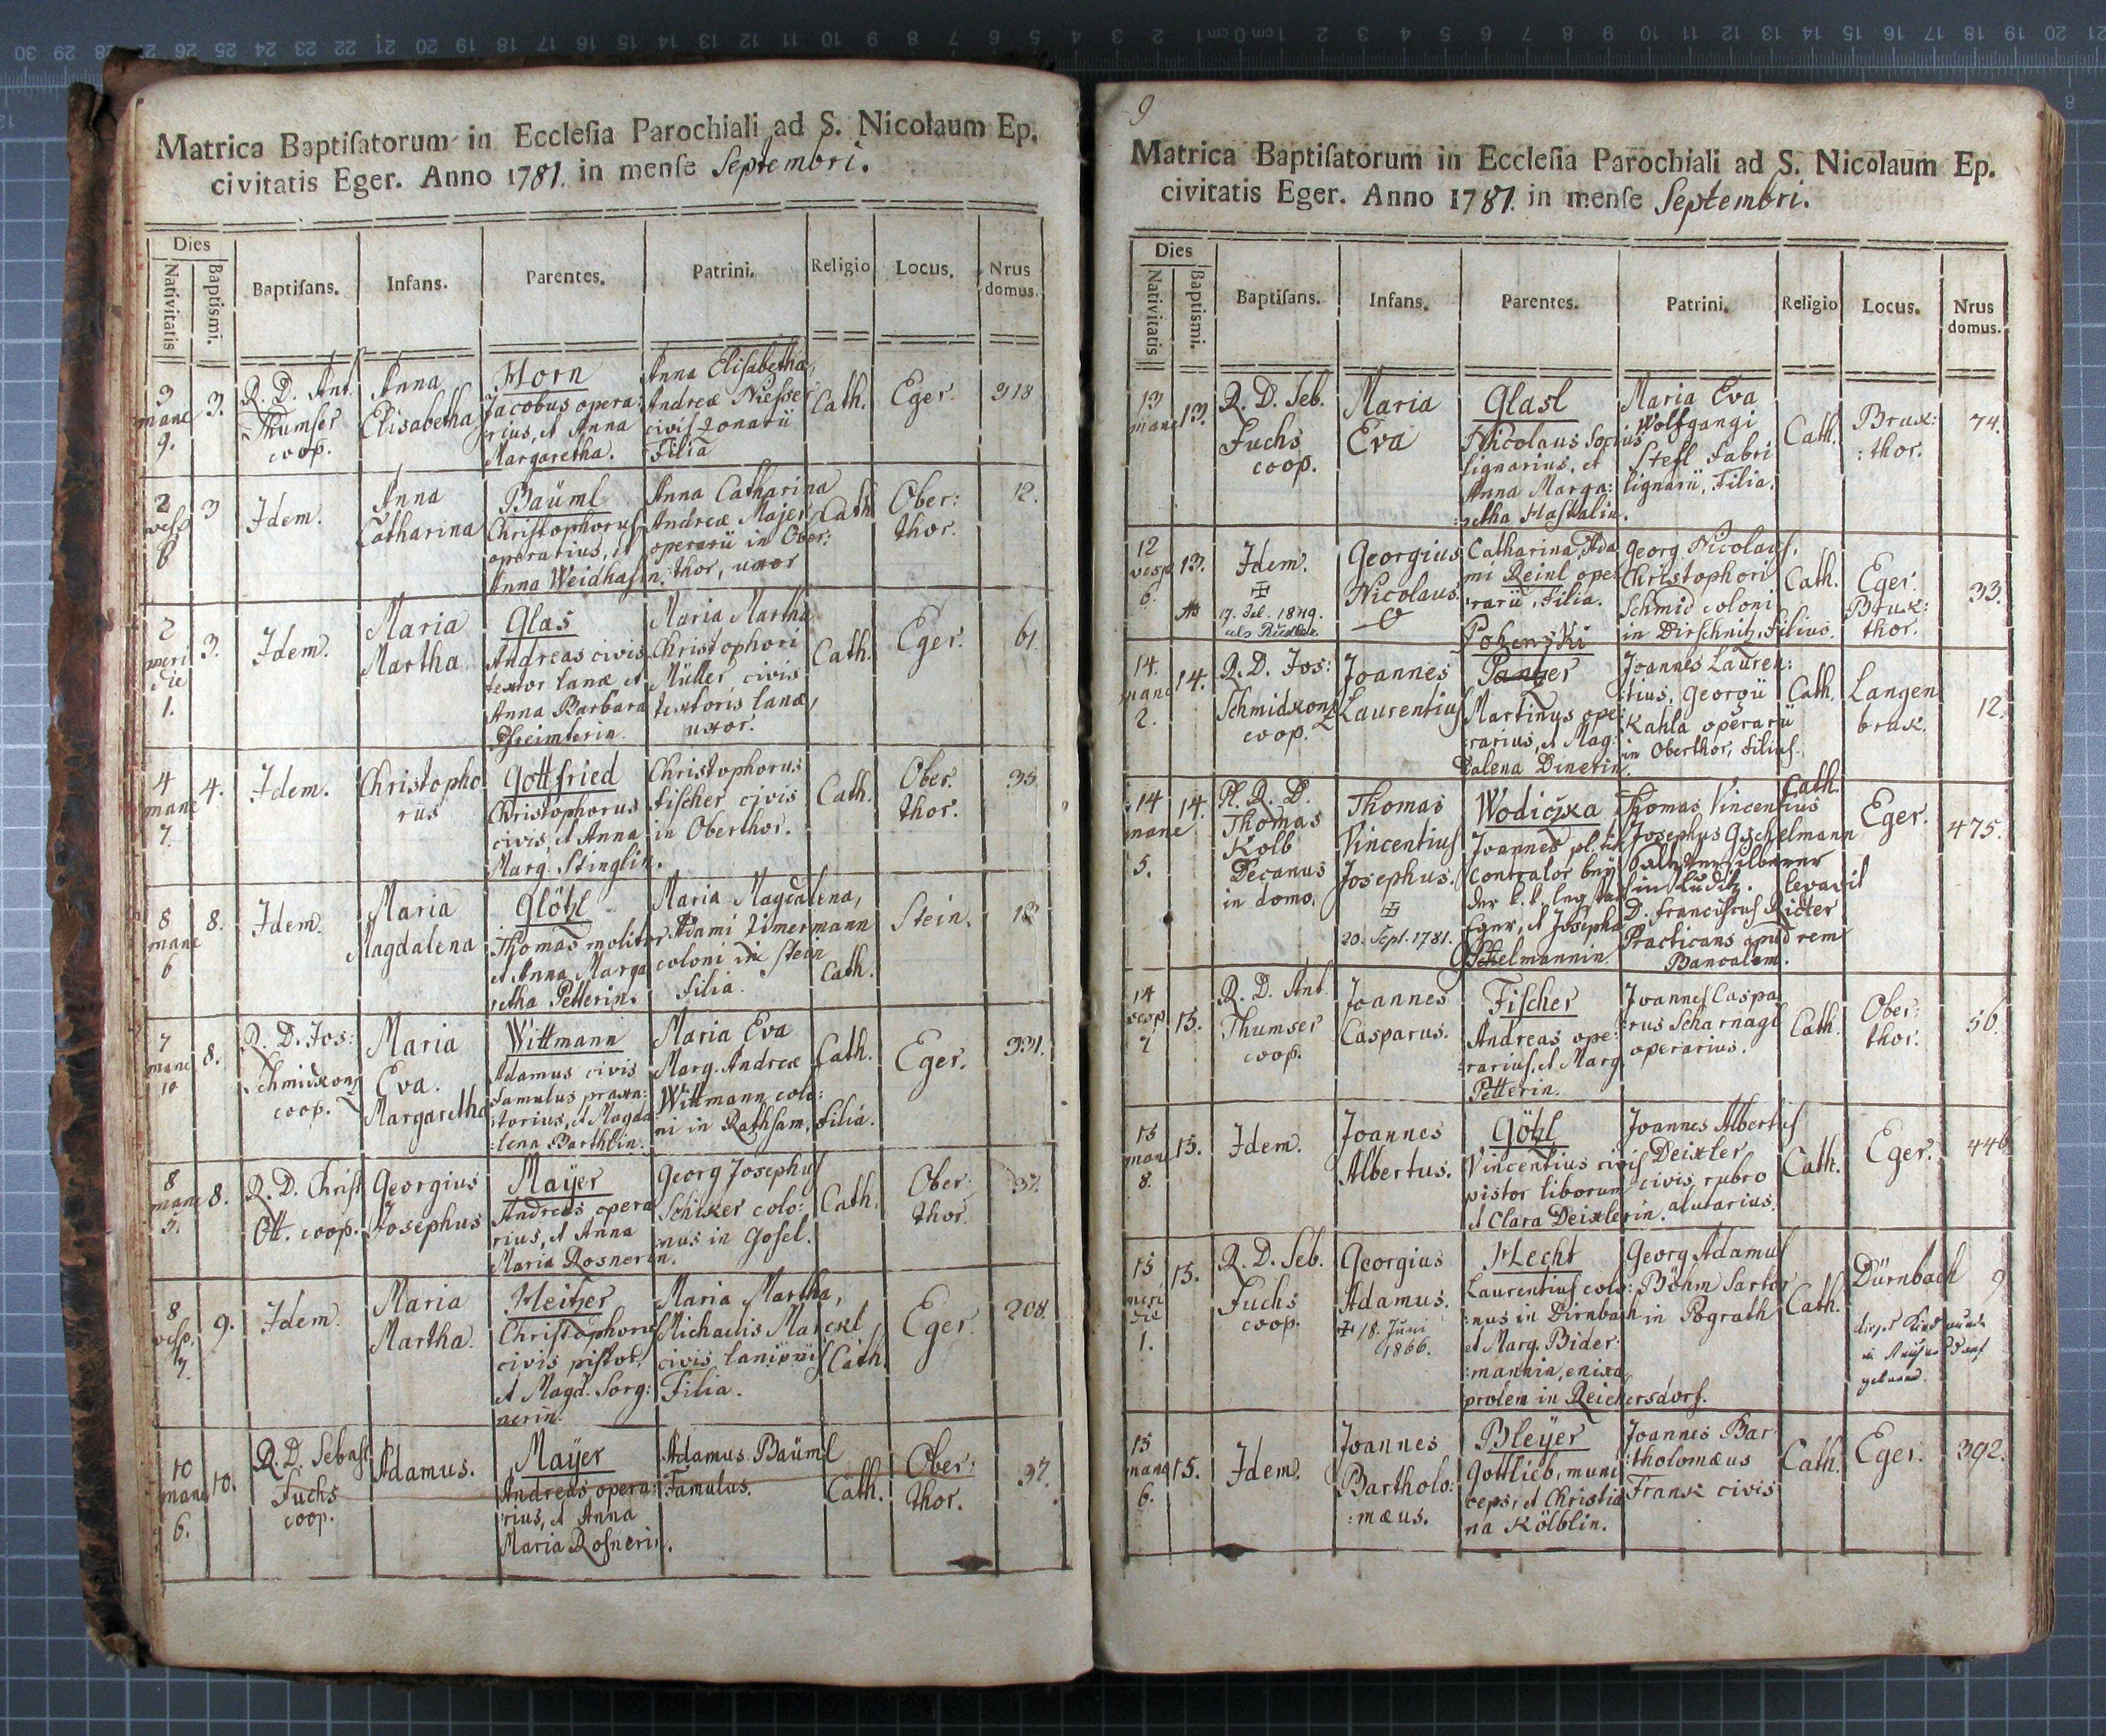 Matrica Baptiſatorum in Eccleſia Parochiali ad S. Nicolaum Ep.
civitatis Eger. Anno 1781. in menſe Septembri.
Dies
Nativitatis
Baptiſmi.
Baptiſans.
Infans.
Parentes.
Patrini.
Religio
Locus.
Nrus
domus.
3
mane
9.
3.
R. D. Ant.
Thumser
coop.
Anna
Elisabetha
Horn
Jacobus opera:
rius, et Anna
Margaretha.
Anna Elisabetha,
Andreæ
civis
Filia
Cath.
Eger.
918
2
vesp
3
Idem.
Anna
Catharina
Baüml
Christophorus
operarius, et
Anna Weidhasin.
Anna Catharina
Andreæ Majer
operarii in Ober:
thor, uxor
Cath
Ober:
thor.
12.
2
meri
die
1.
3.
Idem.
Maria
Martha
Glas
Andreas civis
textor lanæ et
Anna Barbara
Maria Martha
Christophori
Müller civis
textoris lanæ,
uxor.
Cath.
Eger.
61.
4
mane
7.
4.
Idem.
Christopho
rus
Gottfried
Christophorus
civis, et Anna
Marg. Stinglin.
Christophorus
fischer civis
in Oberthor.
Cath.
Ober.
thor.
35.
8
mane
6
8.
Idem.
Maria
Magdalena
Glötzl
Thomas molitor
et Anna Marga
retha Petterin.
Maria Magdalena,
Adami Zimermann
coloni in Stein
Filia.
Cath.
Stein.
7
mane
10
8.
R. D. Jos:
Schmidkonz
coop.
Maria
Eva.
Margaretha
Wittmann
Adamus civis
famulus praxa:
torius, et Magda
lena Barthlin.
Maria Eva
Marg. Andreæ
Wittmann colo:
ni in Rathsam, Filia.
Cath.
Eger.
931.
8
mane
5.
8.
R. D. Christ
Ott. coop.
Georgius
Josephus
Mayer
Andreas opera
rius, et Anna
Maria Rosnerin.
Georg Josephus
Schiker colo:
nus in Gosel.
Cath.
Ober:
thor.
37.
8
vesp.
7.
9.
Idem.
Maria
Martha.
Heitzer
Christophorus
civis pistor,
et Magd. Sorg:
nerin.
Maria Martha,
Michaelis Marckl
civis lanionis
Filia.
Cath.
Eger.
208.
10
mane
6.
10.
R. D. Sebast.
Fuchs
coop.
Adamus.
Mayer
Andreas opera:
rius, et Anna
Maria Rosnerin.
Adamus Baüml
Famulus.
Cath.
Ober:
thor.
37.
9
Matrica Baptiſatorum in Eccleſia Parochiali ad S. Nicolaum Ep.
civitatis Eger. Anno 1781. in menſe Septembri.
Dies
Nativitatis
Baptiſmi.
Baptiſans.
Infans.
Parentes.
Patrini.
Religio
Locus.
Nrus
domus.
13
mane
13.
R. D. Seb.
Fuchs
coop.
Maria
Eva
Glasl
Nicolaus Socius
lignarius, et
Anna Marga:
retha
Maria Eva
Wolfgangi
Stefl Fabri
lignarii, Filia.
Cath.
Brux:
:thor.
74.
12
vesp
6.
13.
Idem.
17. Jul. 1849.
Georgius
Nicolaus.
Catharina, Ada
mi Reinl ope
rarii, Filia.
Georg. Nicolaus,
Christophori
Schmid coloni
in Dirschnitz, Filius.
Cath.
Eger.
Brux:
thor.
33.
14.
mane
2.
14.
R. D. Jos:
Schmidkonz
coop.
Joannes
Laurentius
Panzer
Martinus ope:
rarius, et Mag:
dalena Dinerin.
Joannes Lauren:
tius, Georgii
Kahla operarii
in Oberthor, Filius.
Cath.
Langen
bruk.
12.
14
mane
5.
14.
Pl. R. D.
Thomas
Kolb
Decanus
in domo.
Thomas
Vincentius
Josephus.
20. Sept. 1781.
Wodiczka
Joannes pl. tit
Contralor bey
der k. k.
Eger, et Josepha
Thomas Vincentius
Josephus Gschelmann
D. Franciscus Richter
Practicans apud rem
Bancalem.
levavit
Cath.
Eger.
475.
14
vesp
7
15.
R. D. Ant.
Thumser
coop.
Joannes
Casparus.
Fischer
Andreas ope:
rarius, et Marg.
Petterin.
Joannes Caspa
rus Scharnagl
operarius.
Cath.
Ober:
thor.
56.
15
mane
8.
15.
Idem.
Joannes
Albertus.
Götzl
Vincentius civis
pistor liborum
et Clara Deixlerin.
Joannes Albertus
Deixler
civis, rubro
alutarius.
Cath.
Eger.
446
15
meri
die
1.
15.
R. D. Seb.
Fuchs
coop.
Georgius
Adamus.
18. Juni
1866.
Hecht
Laurentius colo:
nus in Dirnbach
et Marg. Bider:
:mannin, enixa
prolem in Reichersdorf.
Georg Adamus
Böhm Sartor
in Pograth
Cath.
Dürnbach
9
15
mane
6.
15.
Idem.
Joannes
Bartholo:
:mæus.
Bleyer
Gottlieb, muni
ceps, et Christia
na Kölblin.
Joannes Bar
:tholomæus
Frank civis
Cath.
Eger.
392.